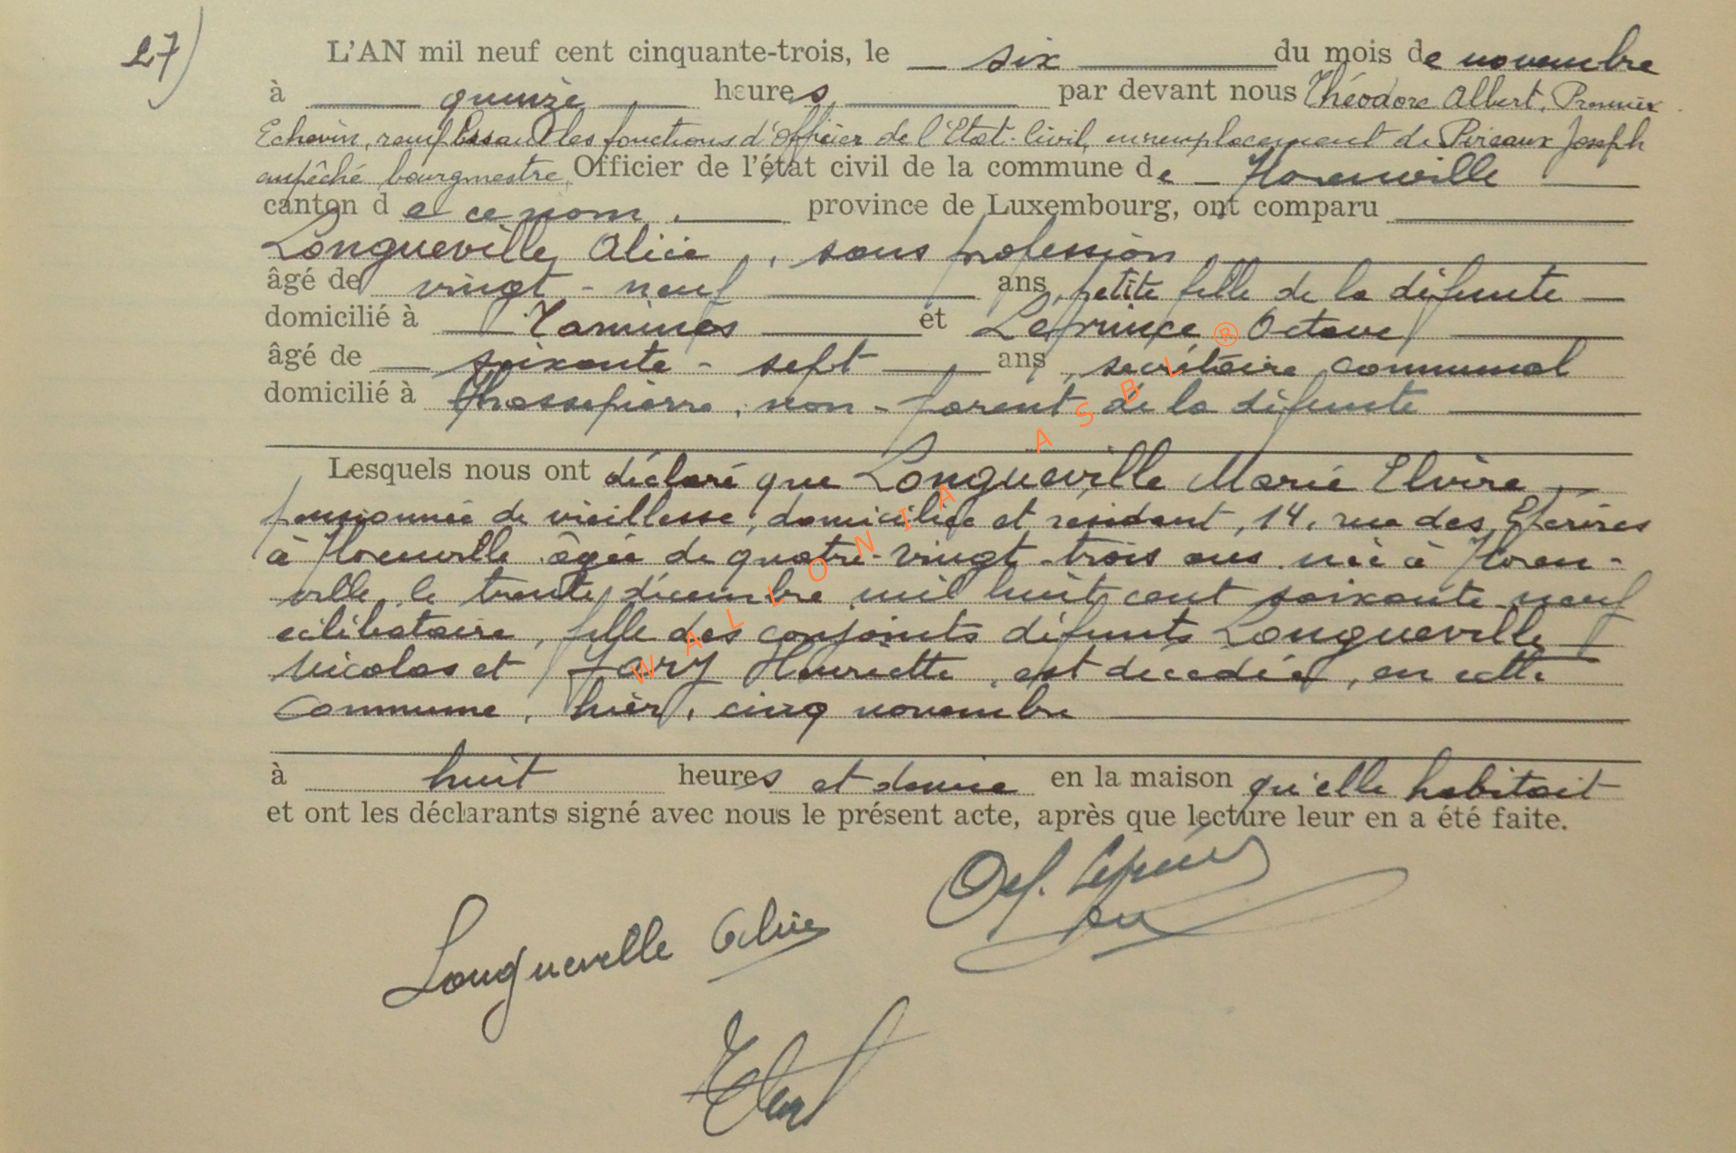 27)
L'AN mil neuf cent cinquante-trois, le six du mois de novembre
à quinze heures par devant nous Théodore Albert, Premier
Echevin, remplissant les fonctions d'Officier de l'Etat-Civil, en remplacement de Pireaux Joseph
empêché, bourgmestre, Officier de l'état civil de la commune de Florenville
canton de ce nom, province de Luxembourg, ont comparu
Longueville Alice, sans profession
âgé de vingt-neuf ans, petite fille de la défunte
domicilié à Tamines et Leprince Octave
âgé de soixante-sept ans, secrétaire communal
domicilié à Chassepierre, non-parent de la défunte
Lesquels nous ont déclaré que Longueville Marie Elvire
pensionnée de vieillesse, domiciliée et résidant, 14, rue des
à Florenville âgée de quatre-vingt-trois ans née à Floren-
ville le trente décembre mil huit cent soixante-neuf
célibataire, fille des conjoints défunts Longueville
Nicolas et Jary Henriette, est décédée, en cette
commune, hier, cinq novembre
à huit heures et demie en la maison qu'elle habitait
et ont les déclarants signé avec nous le présent acte, après que lecture leur en a été faite.
Longueville Alice
WALLONIA ASBL ®